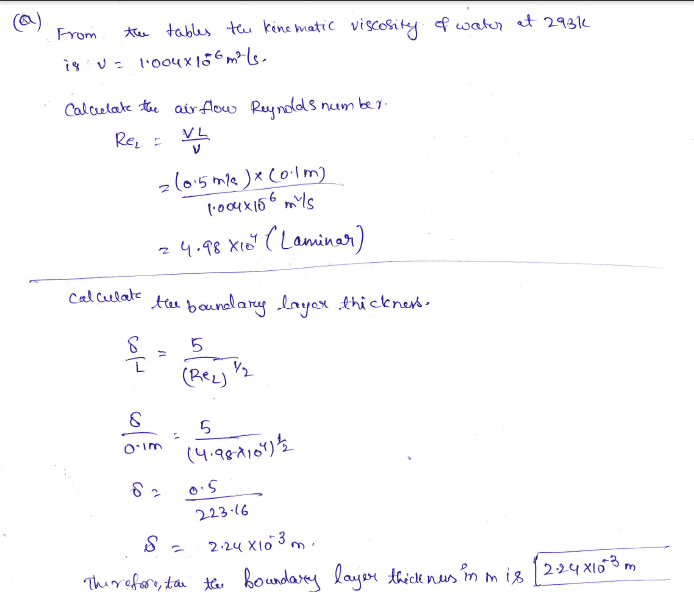 (a) From the tables the kinematic viscosity of water at 293k
is ν = 1.004 x 10^-6 m²/s.
Calculate the air flow Reynolds number.
Re_L = VL/ν
= (0.5 m/s) x (0.1m) / 1.004 x 10^-6 m²/s
= 4.98 x 10^4 (Laminar)
Calculate the boundary layer thickness.
δ/L = 5/(Re_L)^1/2
δ/0.1m = 5/(4.98 x 10^4)^1/2
δ = 0.5/223.16
δ = 2.24 x 10^-3 m.
Therefore, the boundary layer thickness in m is 2.24 x 10^-3 m